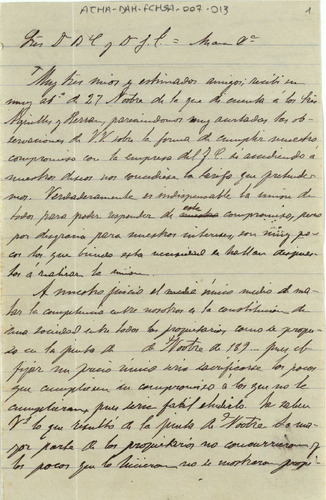 ACHA-DAH-FCHSA-007-013
1
Sres Dn B C y Dn J. C. =
Muy Sres mios y estimados amigos: recibi su
muy att.ª de 27 Nobre de la que di cuenta á los Sres
y Berran, pareciendonos muy acertadas las ob-
servaciones de VV sobre la forma de cumplir nuestro
compromiso con la empresa del f.C. si accediendo á
nuestros deseos nos concediese la tarifa que pretende-
mos. Verdaderamente es indispensable la union de
todos para poder responder de este compromiso, pero
por desgracia para nuestros intereses, son muy po-
cos los que viendo esta necesidad se hallan dispues-
tos a realizar la union.
A nuestro juicio el medio único medio de ma-
tar la competencia entre nosotros es la constitucion de
una sociedad entre todos los propietarios, como se propu-
so en la junta de de Nobre de 189... pues el
fijar un precio único seria sacrificarse los pocos
que cumpliesen su compromiso á los que no le
cumplieran, pues seria facil eludirlo. Ya saben
Vds lo que resultó de la junta de Nobre la ma-
yor parte de los propietarios no concurrieron y
los pocos que lo hicieron no se mostraron propi-